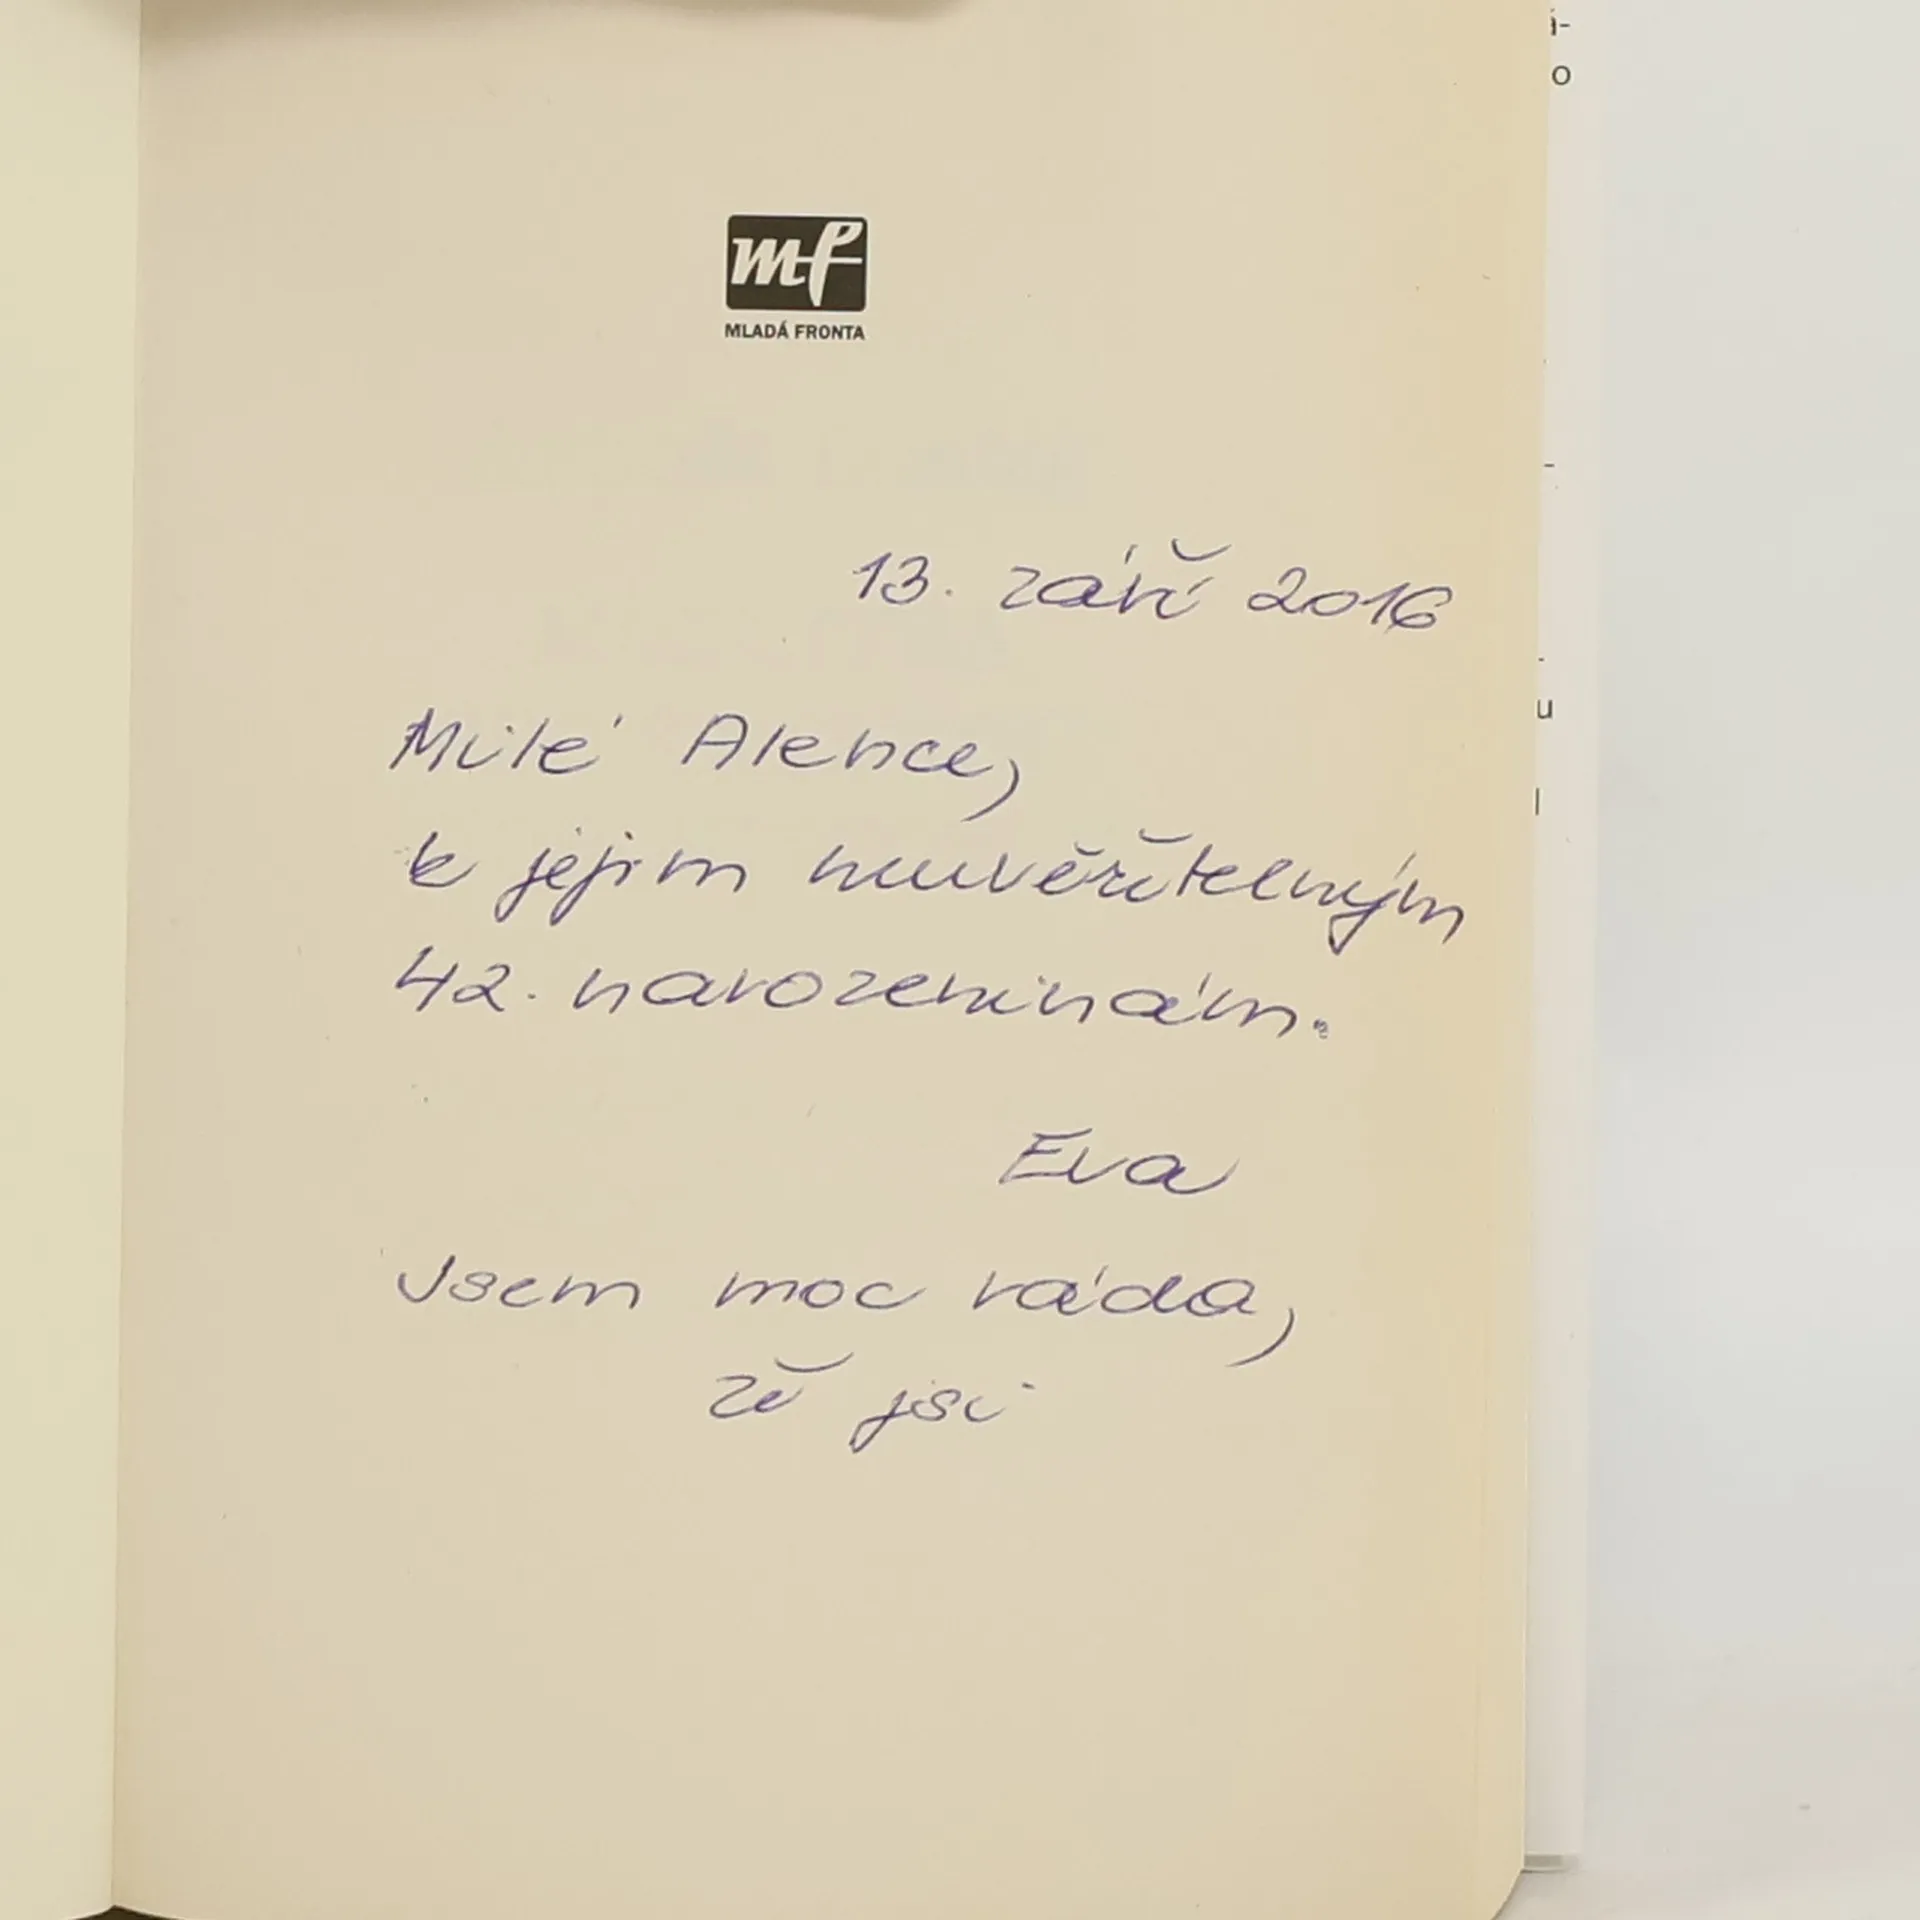 mf
MLADÁ FRONTA
13. září 2016
Milé Alence,
k jejim neuvěřitelným
42. narozeninám.
Eva
Jsem moc ráda,
že jsi